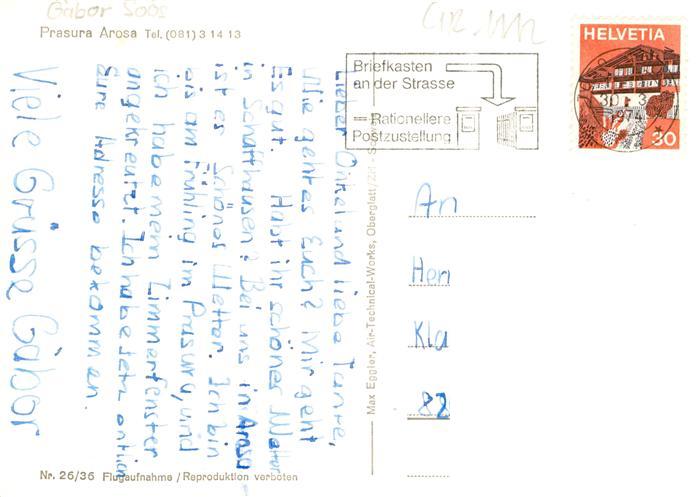 Gabor Soós
Prasura Arosa Tel. (081) 3 14 13
Lieber Onkel und liebe Tante,
Wie geht es Euch? Mir geht
Es gut. Habt ihr schönes Wetter
in Schaffhausen? Bei uns in Arosa
ist es schönes Wetter. Ich bin
bis am Frühling im Prasura, und
ich habe mein Zimmerfenster
angekreutzt. Ich habe jetz
Eure Adresse bekommen.
Viele Grüsse Gábor
Nr. 26/36 Flugaufnahme / Reproduktion verboten
Max Eggler, Air-Technical-Works, Oberglatt/ZH
Briefkasten
an der Strasse
= Rationellere
Postzustellung
HELVETIA
30. 3
1974
30
An
Herr
Kla
82